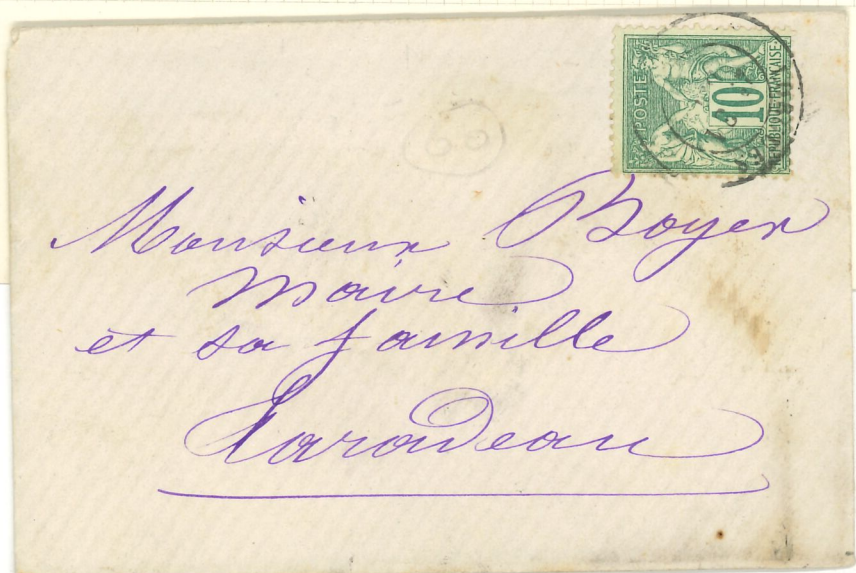 POSTE
10
REPUBLIQUE FRANÇAISE
Monsieur Boyer
maire
et sa famille
Taradeau